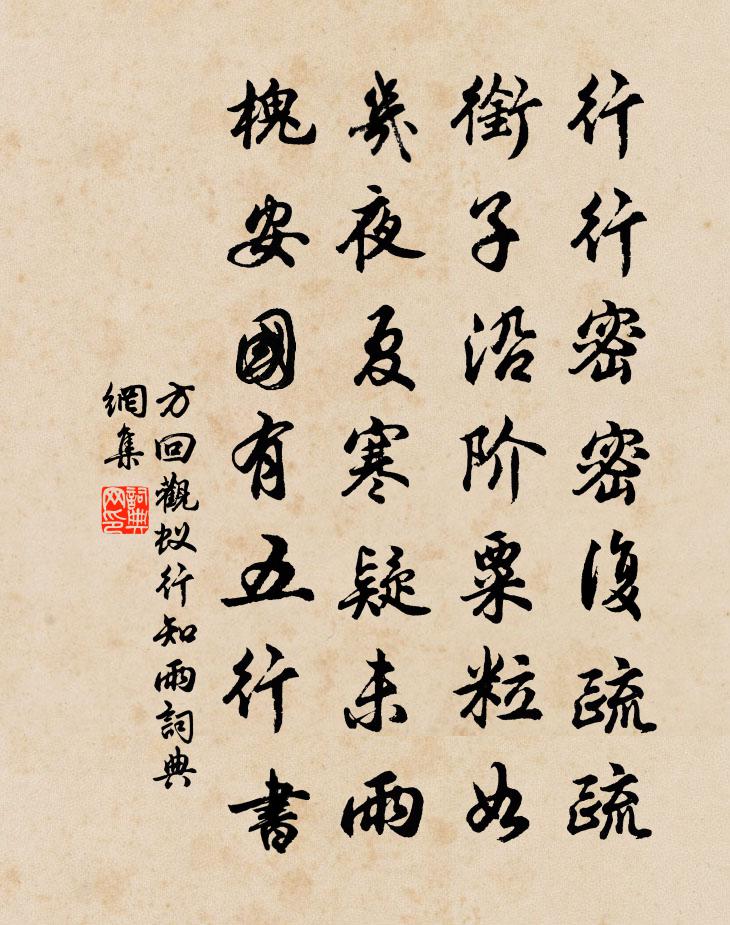 行行密密復疏疏
銜子沿阶粟粒如
幾夜夏寒疑未雨
槐安國有五行書
方回觀蚁行知雨詞典
網集
詞典
网印